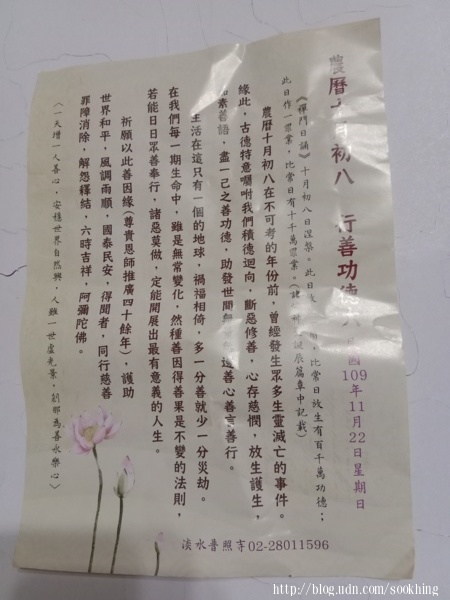 農曆十月初八 行善功德
國109年11月22日星期日
《禪門日誦》十月初八日涅槃。此日 比常日放生有百千萬功德；
此日作一眾業，比常日有十千萬眾業。
農曆十月初八在不可考的年份前，曾經發生眾多生靈滅亡的事件。
緣此，古德特意囑咐我們積德迴向，斷惡修善，心存慈憫，放生護生，
茹素善語，盡一己之善功德，助發世間 造善心善言善行。
生活在這只有一個的地球，禍福相倚，多一分善就少一分災劫。
在我們每一期生命中，雖是無常變化，然種善因得善果是不變的法則，
若能日日眾善奉行，諸惡莫做，定能開展出最有意義的人生。
祈願以此善因緣(尊貴恩師推廣四十餘年)，護助
世界和平，風調雨順，國泰民安，得聞者，同行慈善
罪障消除，解怨釋結，六時吉祥，阿彌陀佛。
（一天增一人善心，安穩世界自然興，人雖一世虛 景，剎那為善永樂心）
淡水普照寺02-28011596
http://blog.udn.com/sookhing